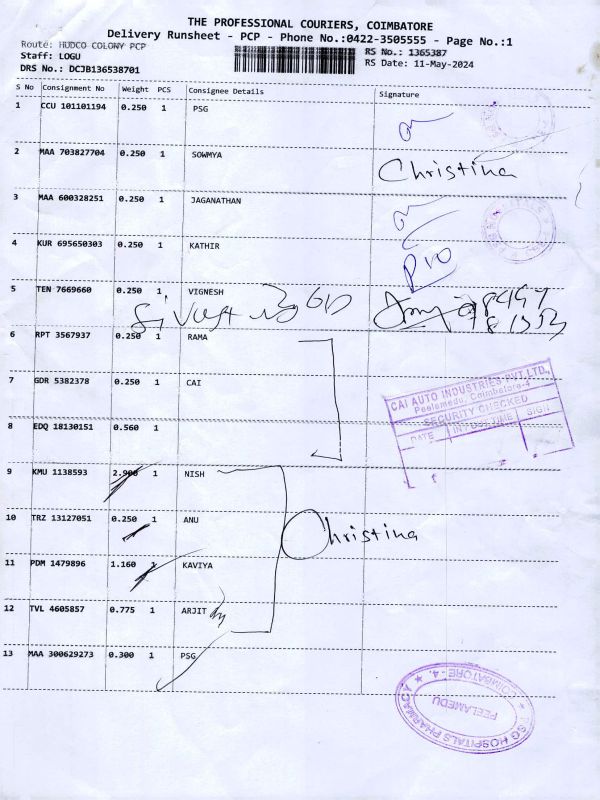 THE PROFESSIONAL COURIERS, COIMBATORE
Delivery Runsheet - PCP - Phone No.:0422-3505555 - Page No.:1
Route: HUDCO COLONY PCP
RS No.: 1365387
Staff: LOGU
RS Date: 11-May-2024
DRS No.: DCJB136538701
S No Consignment No Weight PCS Consignee Details Signature
1 CCU 101101194 0.250 1 PSG
2 MAA 703827704 0.250 1 SOWMYA Christina
3 MAA 600328251 0.250 1 JAGANATHAN
4 KUR 695650303 0.250 1 KATHIR
5 TEN 7669660 0.250 1 VIGNESH
6 RPT 3567937 0.250 1 RAMA
7 GDR 5382378 0.250 1 CAI
CAI AUTO INDUSTRIES PVT.LTD.,
Peelamedu, Coimbatore-4
SECURITY CHECKED
DATE IN / OUT TIME SIGN
8 EDQ 18130151 0.560 1
9 KMU 1138593 2.900 1 NISH
10 TRZ 13127051 0.250 1 ANU Christina
11 PDM 1479896 1.160 1 KAVIYA
12 TVL 4605857 0.775 1 ARJIT
13 MAA 300629273 0.300 1 PSG
PSG HOSPITALS PHARMACY
PEELAMEDU
COIMBATORE - 4.